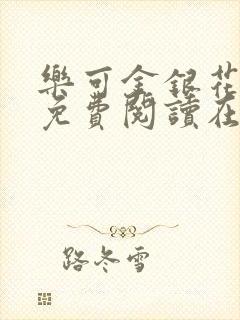 樂可金銀花
免費閱讀在
路冬雪